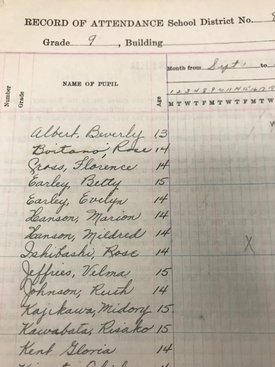 RECORD OF ATTENDANCE School District No.
Grade 9, Building
Number
Grade
NAME OF PUPIL
Age
Month from Sept 1 to
M T W T F M T W T F M T W T F M
Albert, Beverly 13
Rose 14
Gross, Florence 14
Earley, Betty 15
Earley, Evelyn 14
Hanson, Marion 14
Hanson, Mildred 14
Ishibashi, Rose 14
Jeffries, Velma 15
Johnson, Ruth 14
Kajikawa, Midory 15
Kawabata, Risako 15
Kent Gloria 14
X